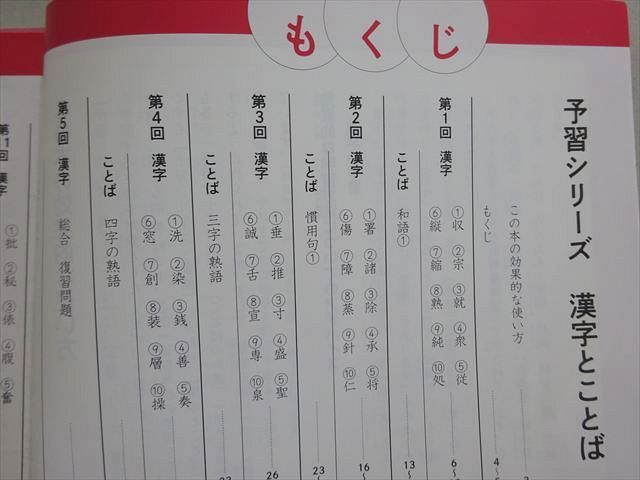 もくじ
予習シリーズ 漢字とことば
この本の効果的な使い方
もくじ
4〜
第1回 漢字
①収 ②宗 ③就 ④衆 ⑤従
⑥縦 ⑦縮 ⑧熟 ⑨純 ⑩処
6〜
ことば 和語①
13〜
第2回 漢字
①署 ②諸 ③除 ④承 ⑤将
⑥傷 ⑦障 ⑧蒸 ⑨針 ⑩仁
16〜
ことば 慣用句①
23〜
第3回 漢字
①垂 ②推 ③寸 ④盛 ⑤聖
⑥誠 ⑦舌 ⑧宣 ⑨専 ⑩泉
26
ことば 三字の熟語
第4回 漢字
①洗 ②染 ③銭 ④善 ⑤奏
⑥窓 ⑦創 ⑧装 ⑨層 ⑩操
ことば 四字の熟語
第5回 漢字 総合 復習問題
第11回 漢字
①批 ②秘 ③俵 ④腹 ⑤奮